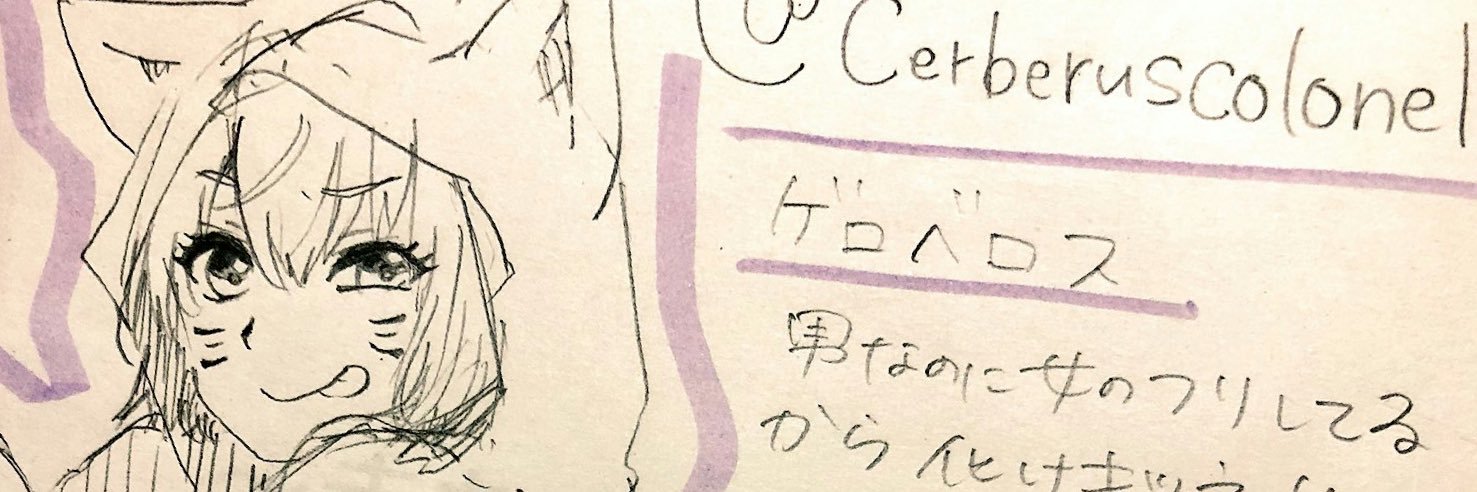 @Cerberuscolonel
ゲロベロス
男なのに女のフリしてる
から化けキツネ